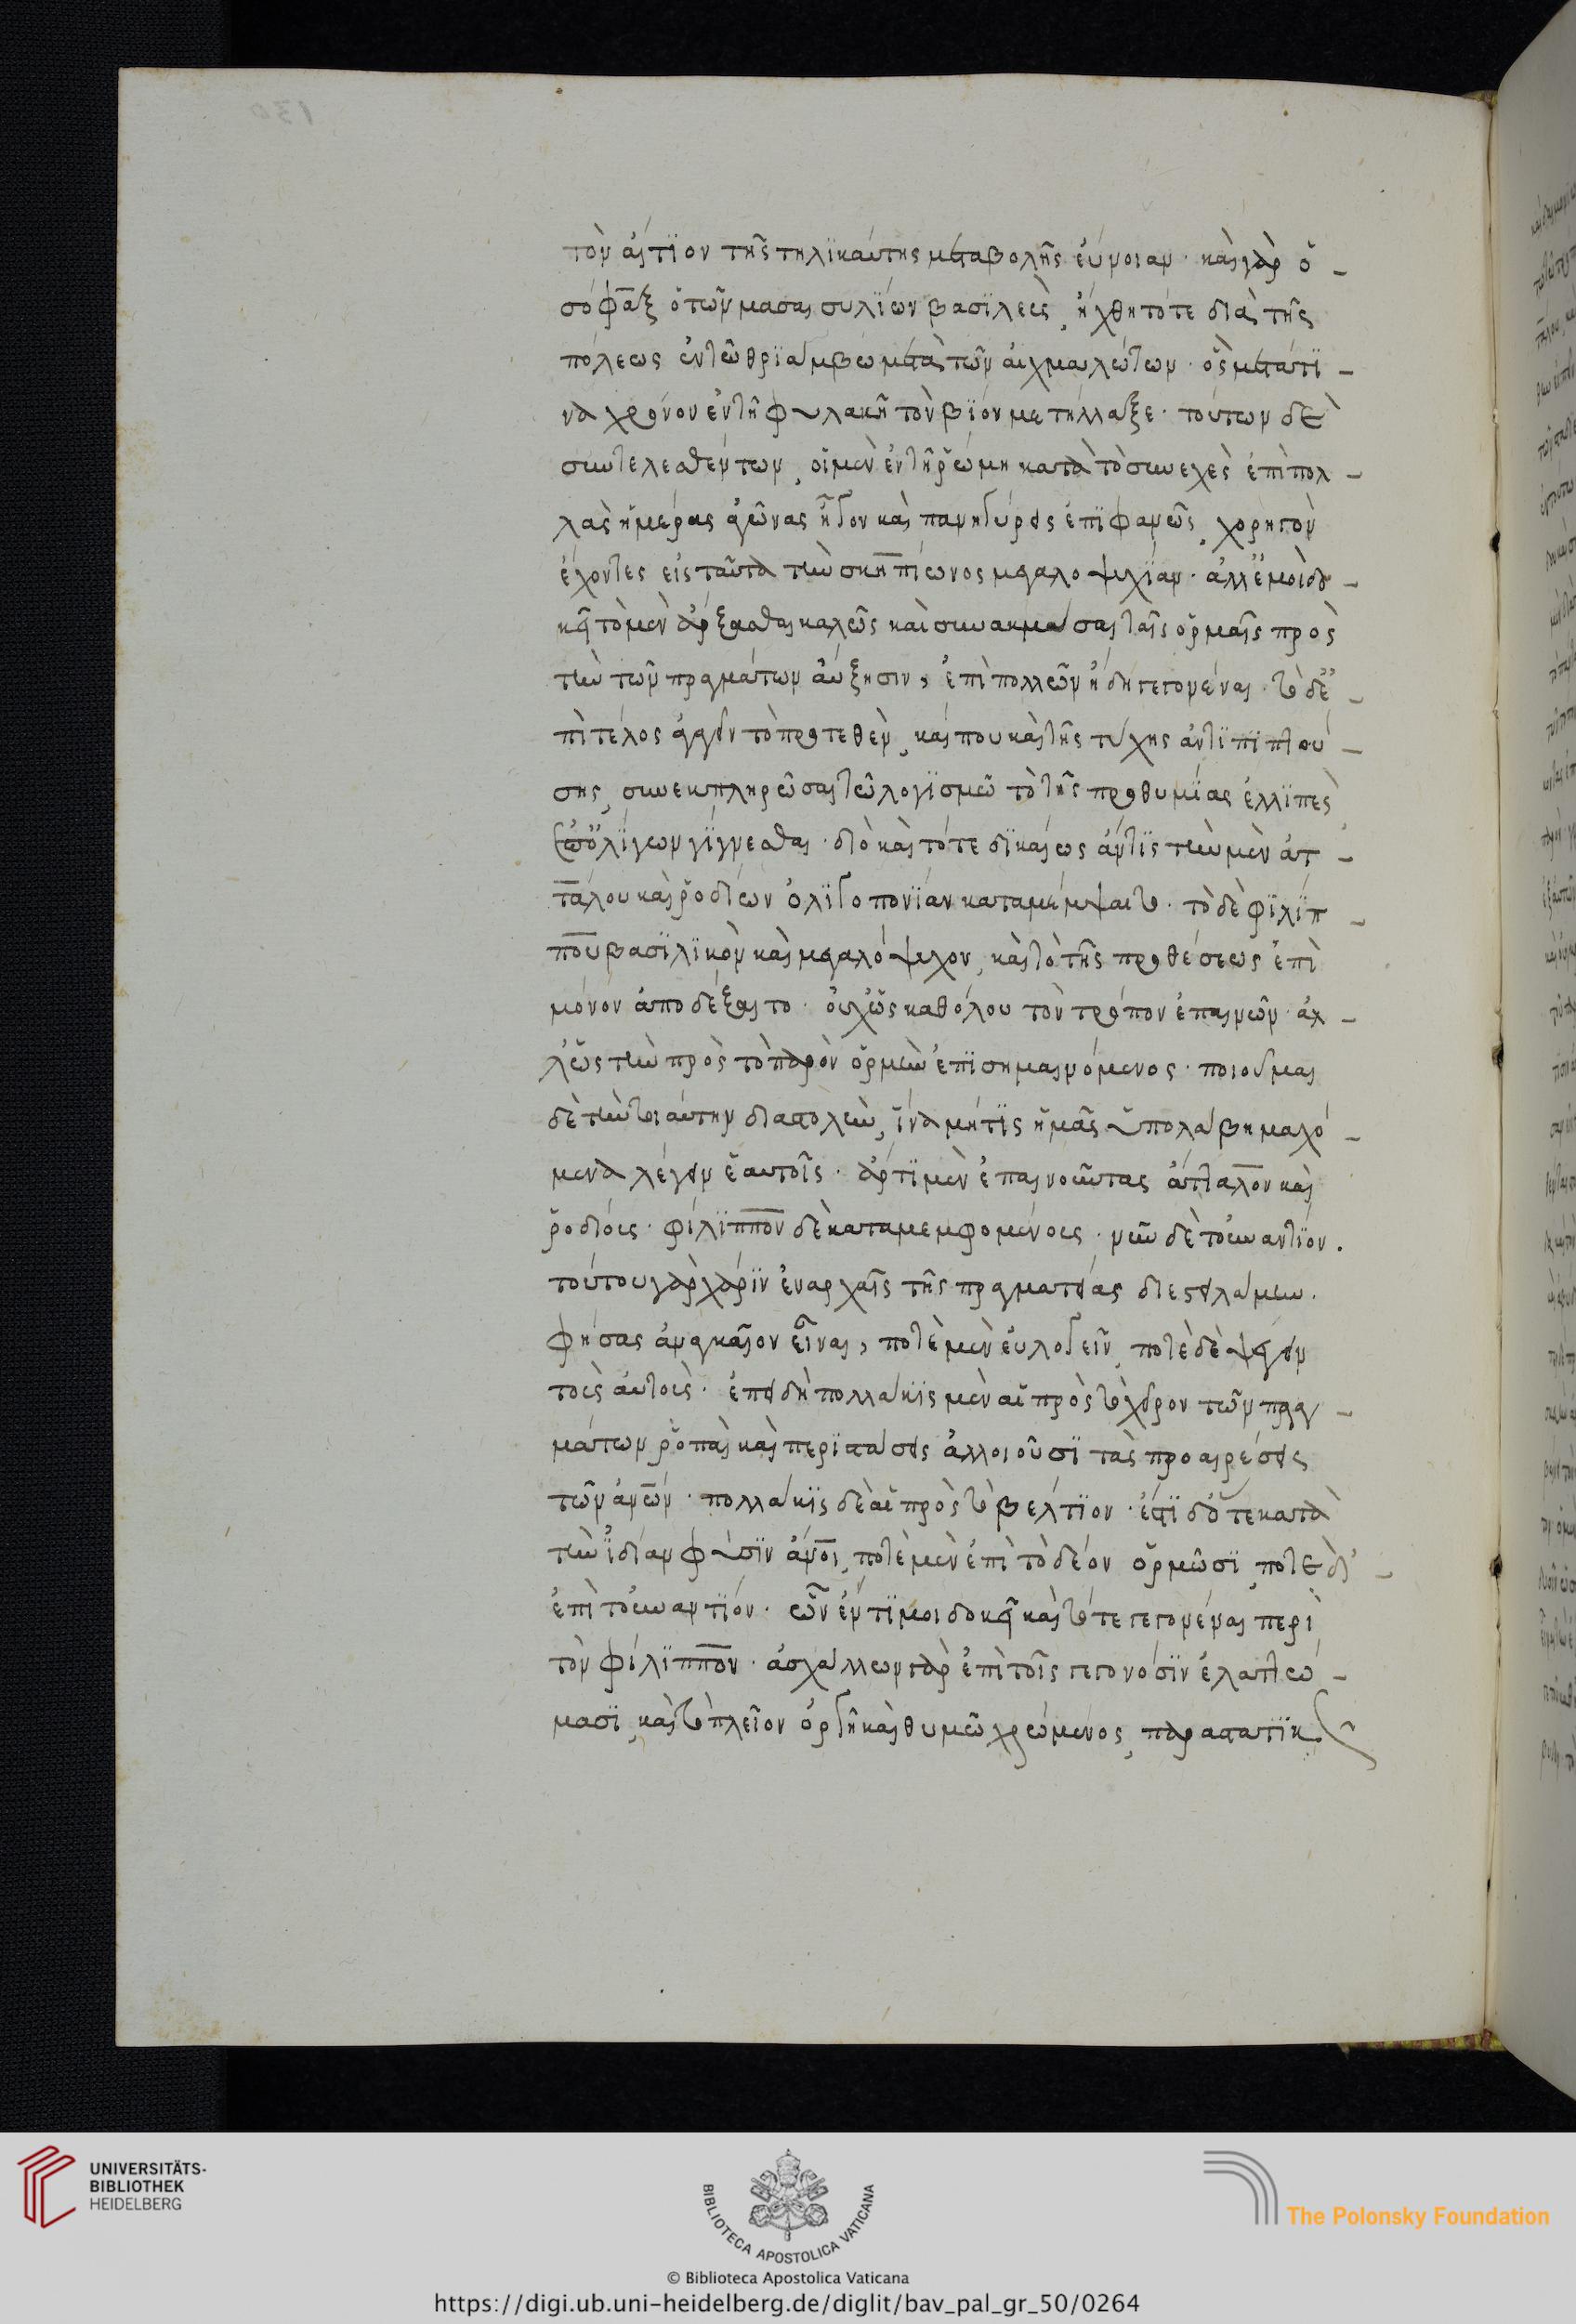 τὸν αἴτϊον τῆς τηλϊκαύτης μεταβολῆς εὔνοιαν · καὶ γὰρ ὁ -
σόφαξ ὁ τῶν μασαισυλΐων βασϊλεὺς, ἤχθη τότε διὰ τῆς
πόλεως ἐν τῶ θρϊάμβω μετὰ τῶν αἰχμαλώτων · ὃς μετά τϊ -
να χρόνον ἐν τῆ φυλακῆ τὸν βΐον μετήλλαξε · τούτων δὲ
συντελεσθέντων, οἱ μὲν ἐν τῆ ῥώμη κατὰ τὸ συνεχὲς ἐπὶ πολ -
λὰς ἡμέρας ἀγῶνας ἦγον καὶ πανηγύρεις ἐπϊφανῶς, χορηγὸν
ἔχοντες εἰς ταῦτα τὴν σκηπΐωνος μεγαλοψυχΐαν · ἀλλ' ἐμοὶ δο -
κεῖ τὸ μὲν ἄρξασθαι καλῶς καὶ συνακμάσαι ταῖς ὁρμαῖς πρὸς
τὴν τῶν πραγμάτων αὔξησιν, ἐπὶ πολλῶν ἤδη γεγονέναι · τὸ δ' ἐ -
πὶ τέλος ἀγαγεῖν τὸ προτεθὲν, καί που καὶ τῆς τύχης ἀντϊπϊπτού -
σης, συνεκπληρῶσαι τῶ λογϊσμῶ τὸ τῆς προθυμΐας ἐλλϊπὲς
ἐπ' ὀλΐγων γΐγνεσθαι · διὸ καὶ τότε δϊκαίως ἄν τϊς τὴν μὲν ἀτ -
τάλου καὶ ῥοδίων ὀλϊγοπονΐαν καταμέμψαιτο · τὸ δὲ φϊλΐπ -
που βασϊλϊκὸν καὶ μεγαλόψυχον, καὶ τὸ τῆς προθέσεως ἐπὶ
μόνον ἀποδέξαιτο · οὐχ ὡς καθόλου τὸν τρόπον ἐπαινῶν · ἀλ -
λ' ὡς τὴν πρὸς τὸ παρὸν ὁρμὴν ἐπϊσημαινόμενος · ποιοῦμαι
δὲ τὴν τοιαύτην διαστολὴν, ἵνα μή τϊς ἡμᾶς ὑπολάβη μαχό -
μενα λέγειν ἑαυτοῖς · ἄρτϊ μὲν ἐπαινοῦντας ἄτταλον καὶ
ῥοδίους · φίλϊππον δὲ καταμεμφομένους · νῦν δὲ τοὐναντΐον .
τούτου γὰρ χάρϊν ἐν ἀρχαῖς τῆς πραγματείας διεστειλάμην ·
φήσας ἀναγκαῖον εἶναι, ποτὲ μὲν εὐλογεῖν, ποτὲ δὲ ψέγειν
τοὺς αὐτοὺς · ἐπειδὴ πολλάκϊς μὲν αἱ πρὸς τὸ χεῖρον τῶν πραγ -
μάτων ῥοπαὶ καὶ περϊστάσεις ἀλλοιοῦσϊ τὰς προαιρέσεις
τῶν ἀν̅ω̅ν · πολλάκϊς δὲ αἱ πρὸς τὸ βέλτϊον · ἔστϊ δ' ὅτε κατὰ
τὴν ἰδίαν φύσϊν ἄν̅ο̅ι, ποτὲ μὲν ἐπὶ τὸ δέον ὁρμῶσϊ, ποτὲ δὲ -
ἐπὶ τοὐναντΐον · ὧν ἕν τϊ μοι δοκεῖ καὶ τότε γεγονέναι περὶ
τὸν φίλϊππον · ἀσχάλλων γὰρ ἐπὶ τοῖς γεγονόσϊν ἐλαττώ -
μασϊ, καὶ τὸ πλεῖον ὀργῆ καὶ θυμῶ χρώμενος, παραστατϊκ
130
UNIVERSITÄTS-
BIBLIOTHEK
HEIDELBERG
BIBLIOTECA APOSTOLICA VATICANA
The Polonsky Foundation
© Biblioteca Apostolica Vaticana
https://digi.ub.uni-heidelberg.de/diglit/bav_pal_gr_50/0264